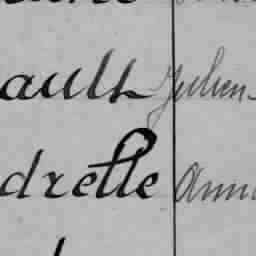 ault Julien
drelle Anna